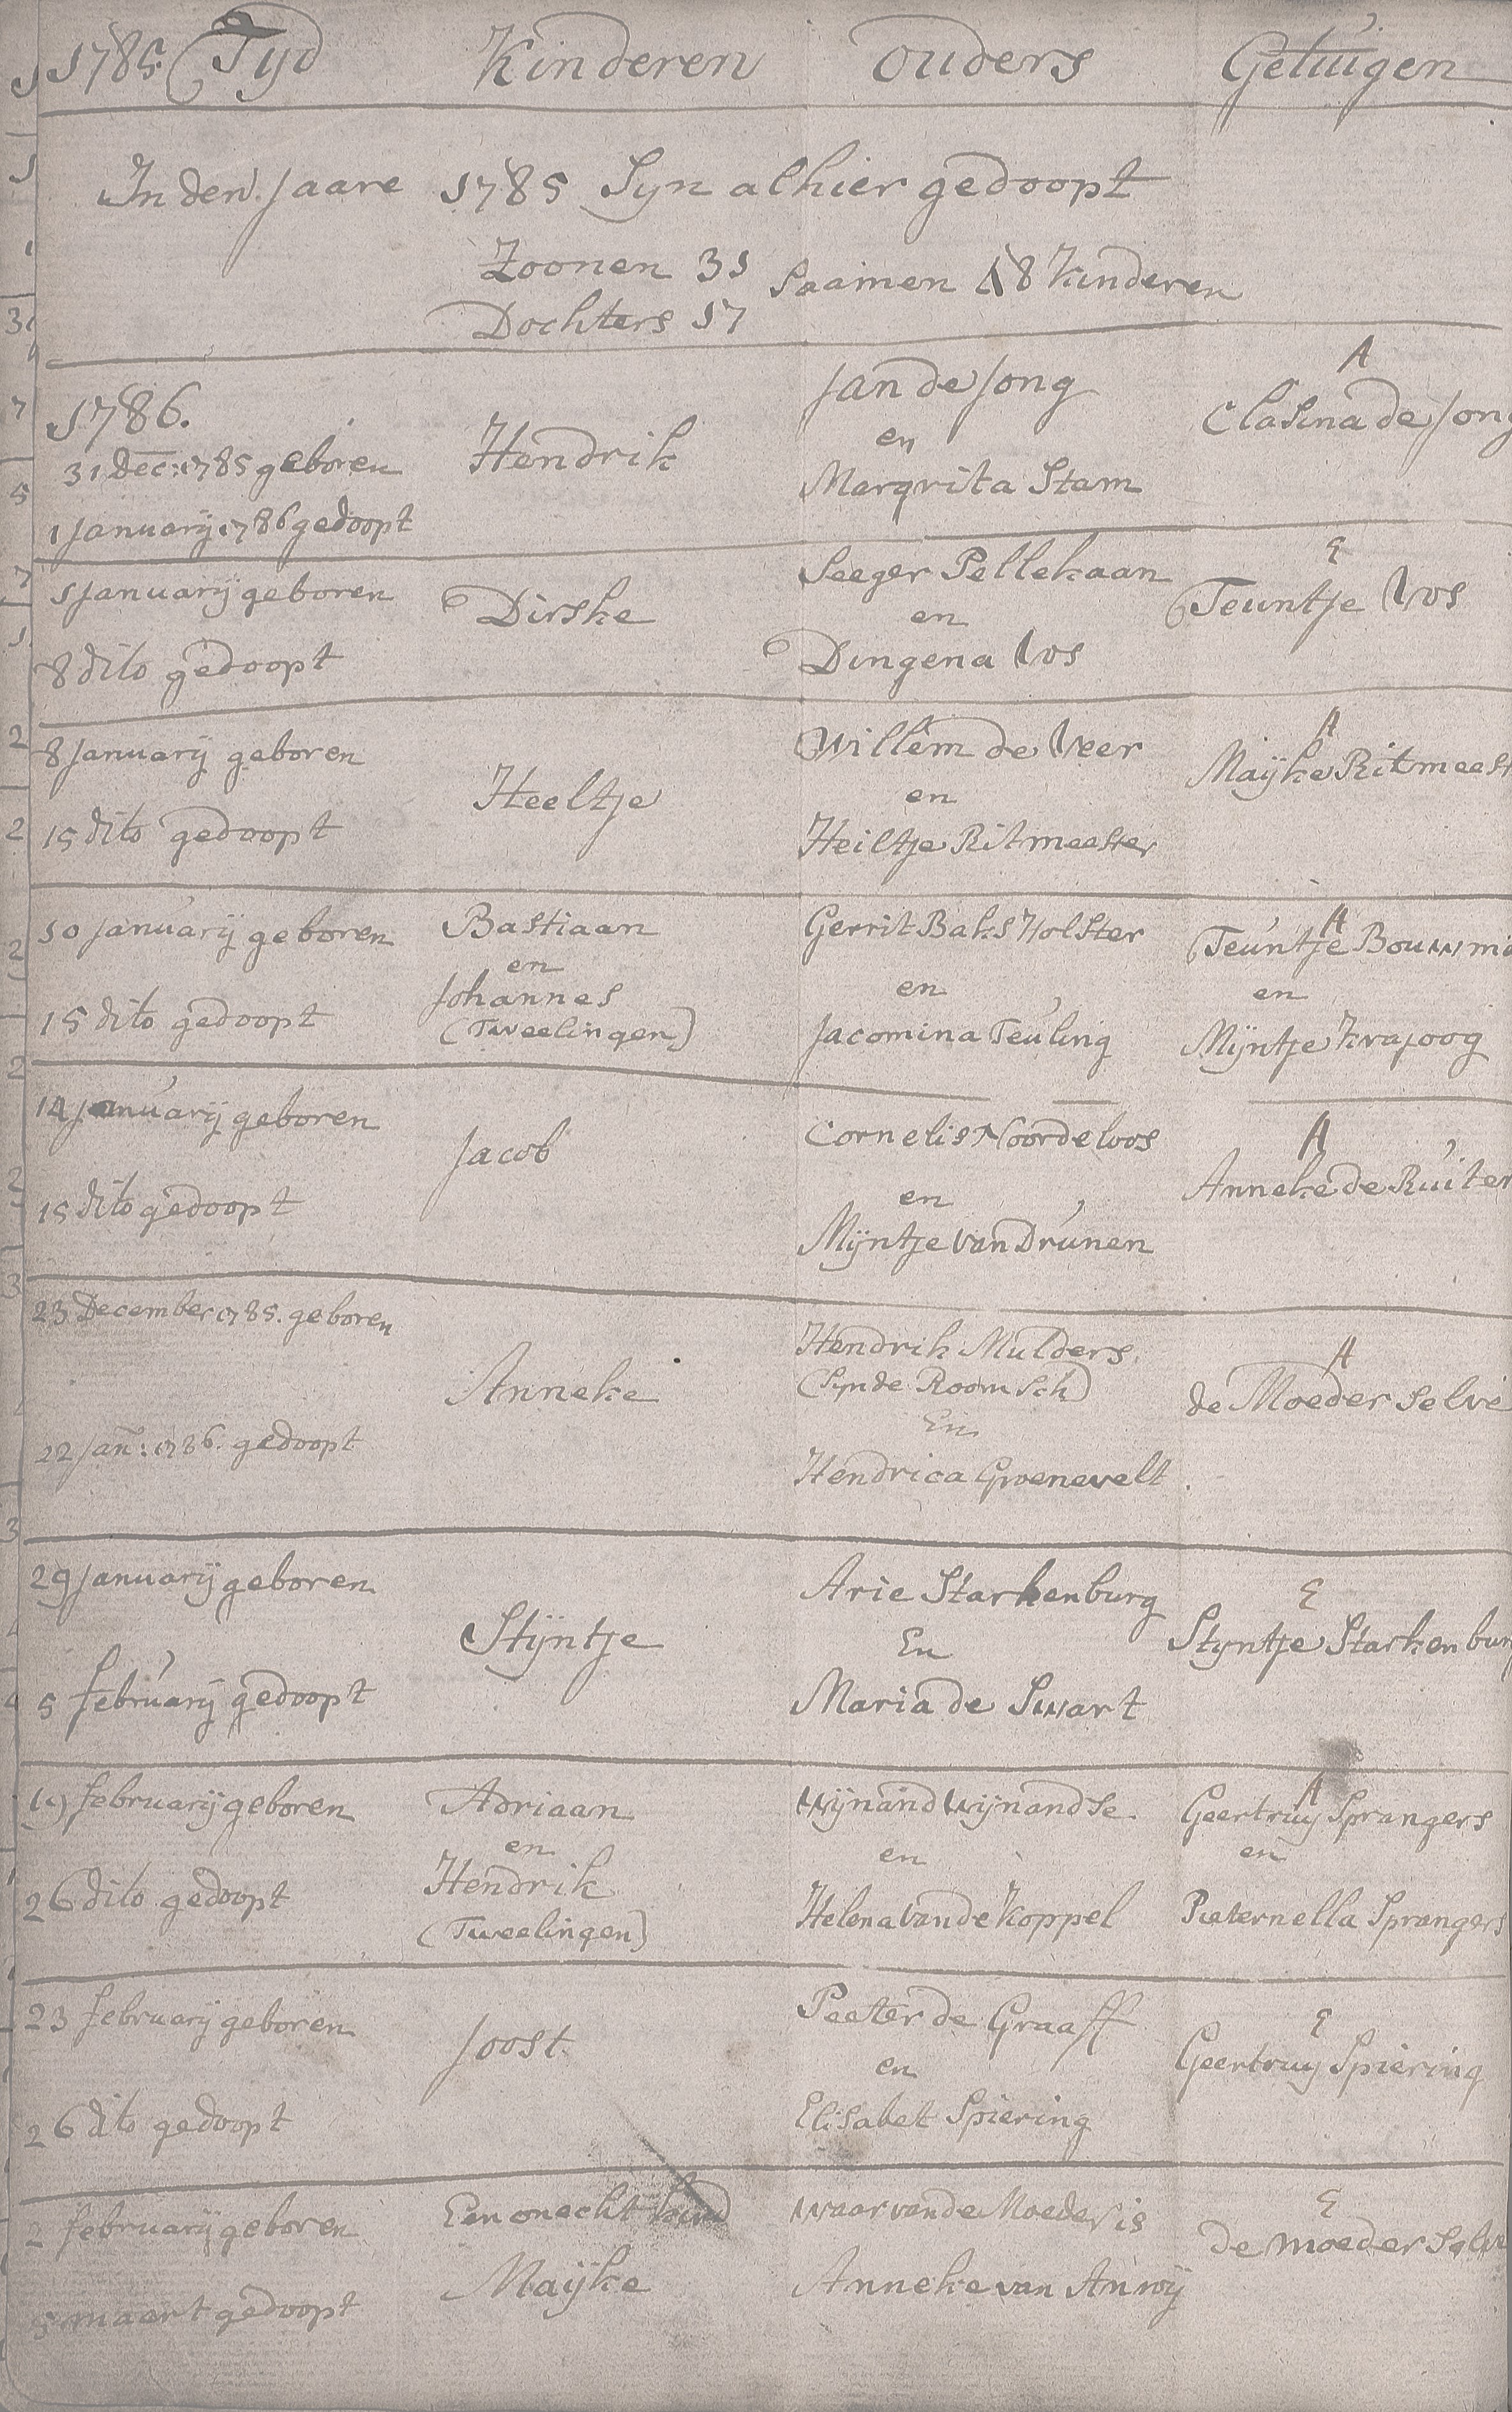 1785. Tyd Kinderen ouders Getuigen
In den Jaare 1785 Syn alhier gedoopt
Zoonen 31
Saamen 48 Kinderen
Dochters 17
1786.
31 Dec: 1785 geboren
1 January 1786 gedoopt
Hendrik
Jan de Jong
en
Margrita Stam
A
Clasina de Jong
1 Januarij geboren
8 dito gedoopt
Dirske
Seeger Pellekaan
en
Dingena Vos
E
Teuntje Vos
8 Januarij geboren
15 dito gedoopt
Heeltje
Willem de Veer
en
Heiltje Ritmeester
A
Maijke Ritmeest
10 Januarij geboren
15 dito gedoopt
Bastiaan
en
Johannes
(Tweelingen)
Gerrit Baks Holster
en
Jacomina Teuling
A
Teuntje Bouwm
en
Mijntje Krajoog
14 Januarij geboren
15 dito gedoopt
Jacob
Cornelis Noordeloos
en
Mijntje van Drunen
A
Anneke de Ruiter
23 December 1785. geboren
22 Jan: 1786. gedoopt
Anneke
Hendrik Mulders
(Synde Roomsch)
En
Hendrica Groenevelt
A
de Moeder selve
29 Januarij geboren
5 februarij gedoopt
Stijntje
Arie Starkenburg
En
Maria de Swart
E
Styntje Starkenburg
19 februarij geboren
26 dito gedoopt
Adriaan
en
Hendrik
(Tweelingen)
Wijnand Wijnandse
en
Helena van de Koppel
A
Geertruy Sprangers
en
Pieternella Sprangers
23 februarij geboren
26 dito gedoopt
Joost
Peeter de Graaff
en
Elisabet Spiering
E
Geertruy Spiering
2 februarij geboren
5 maert gedoopt
Een onecht kind
Maijke
waar van de Moeder is
Anneke van Anroij
E
de moeder selve